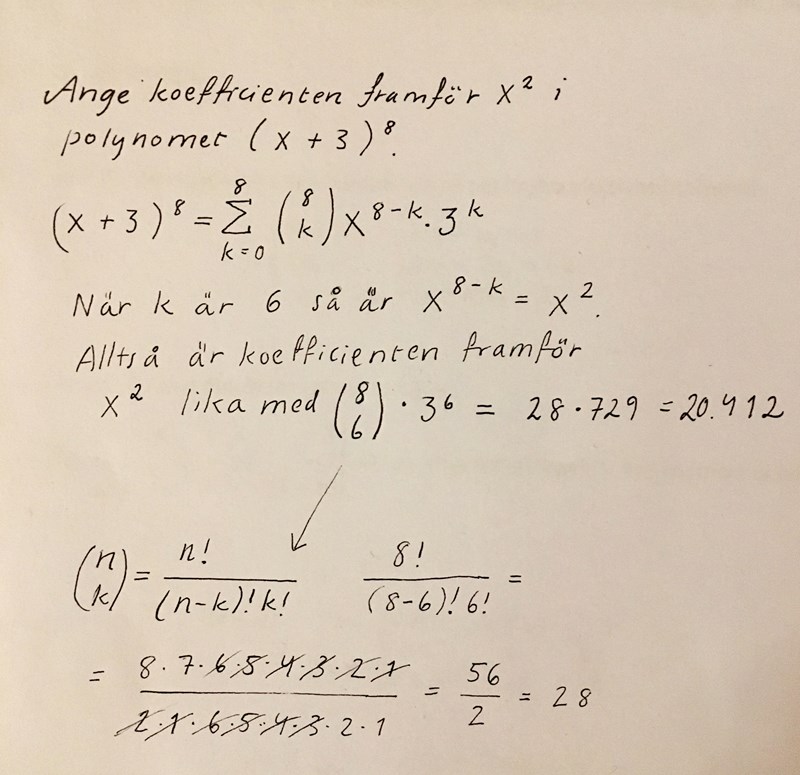 Ange koefficienten framför x² i
polynomet (x + 3)⁸.
(x + 3)⁸ = Σ_{k=0}^{8} (8 k) x^{8-k} · 3^k
När k är 6 så är x^{8-k} = x².
Alltså är koefficienten framför
x² lika med (8 6) · 3⁶ = 28 · 729 = 20.412
(n k) = n! / (n-k)! k!    8! / (8-6)! 6! =
= 8 · 7 · 6 · 5 · 4 · 3 · 2 · 1 / 2 · 1 · 6 · 5 · 4 · 3 · 2 · 1 = 56 / 2 = 28